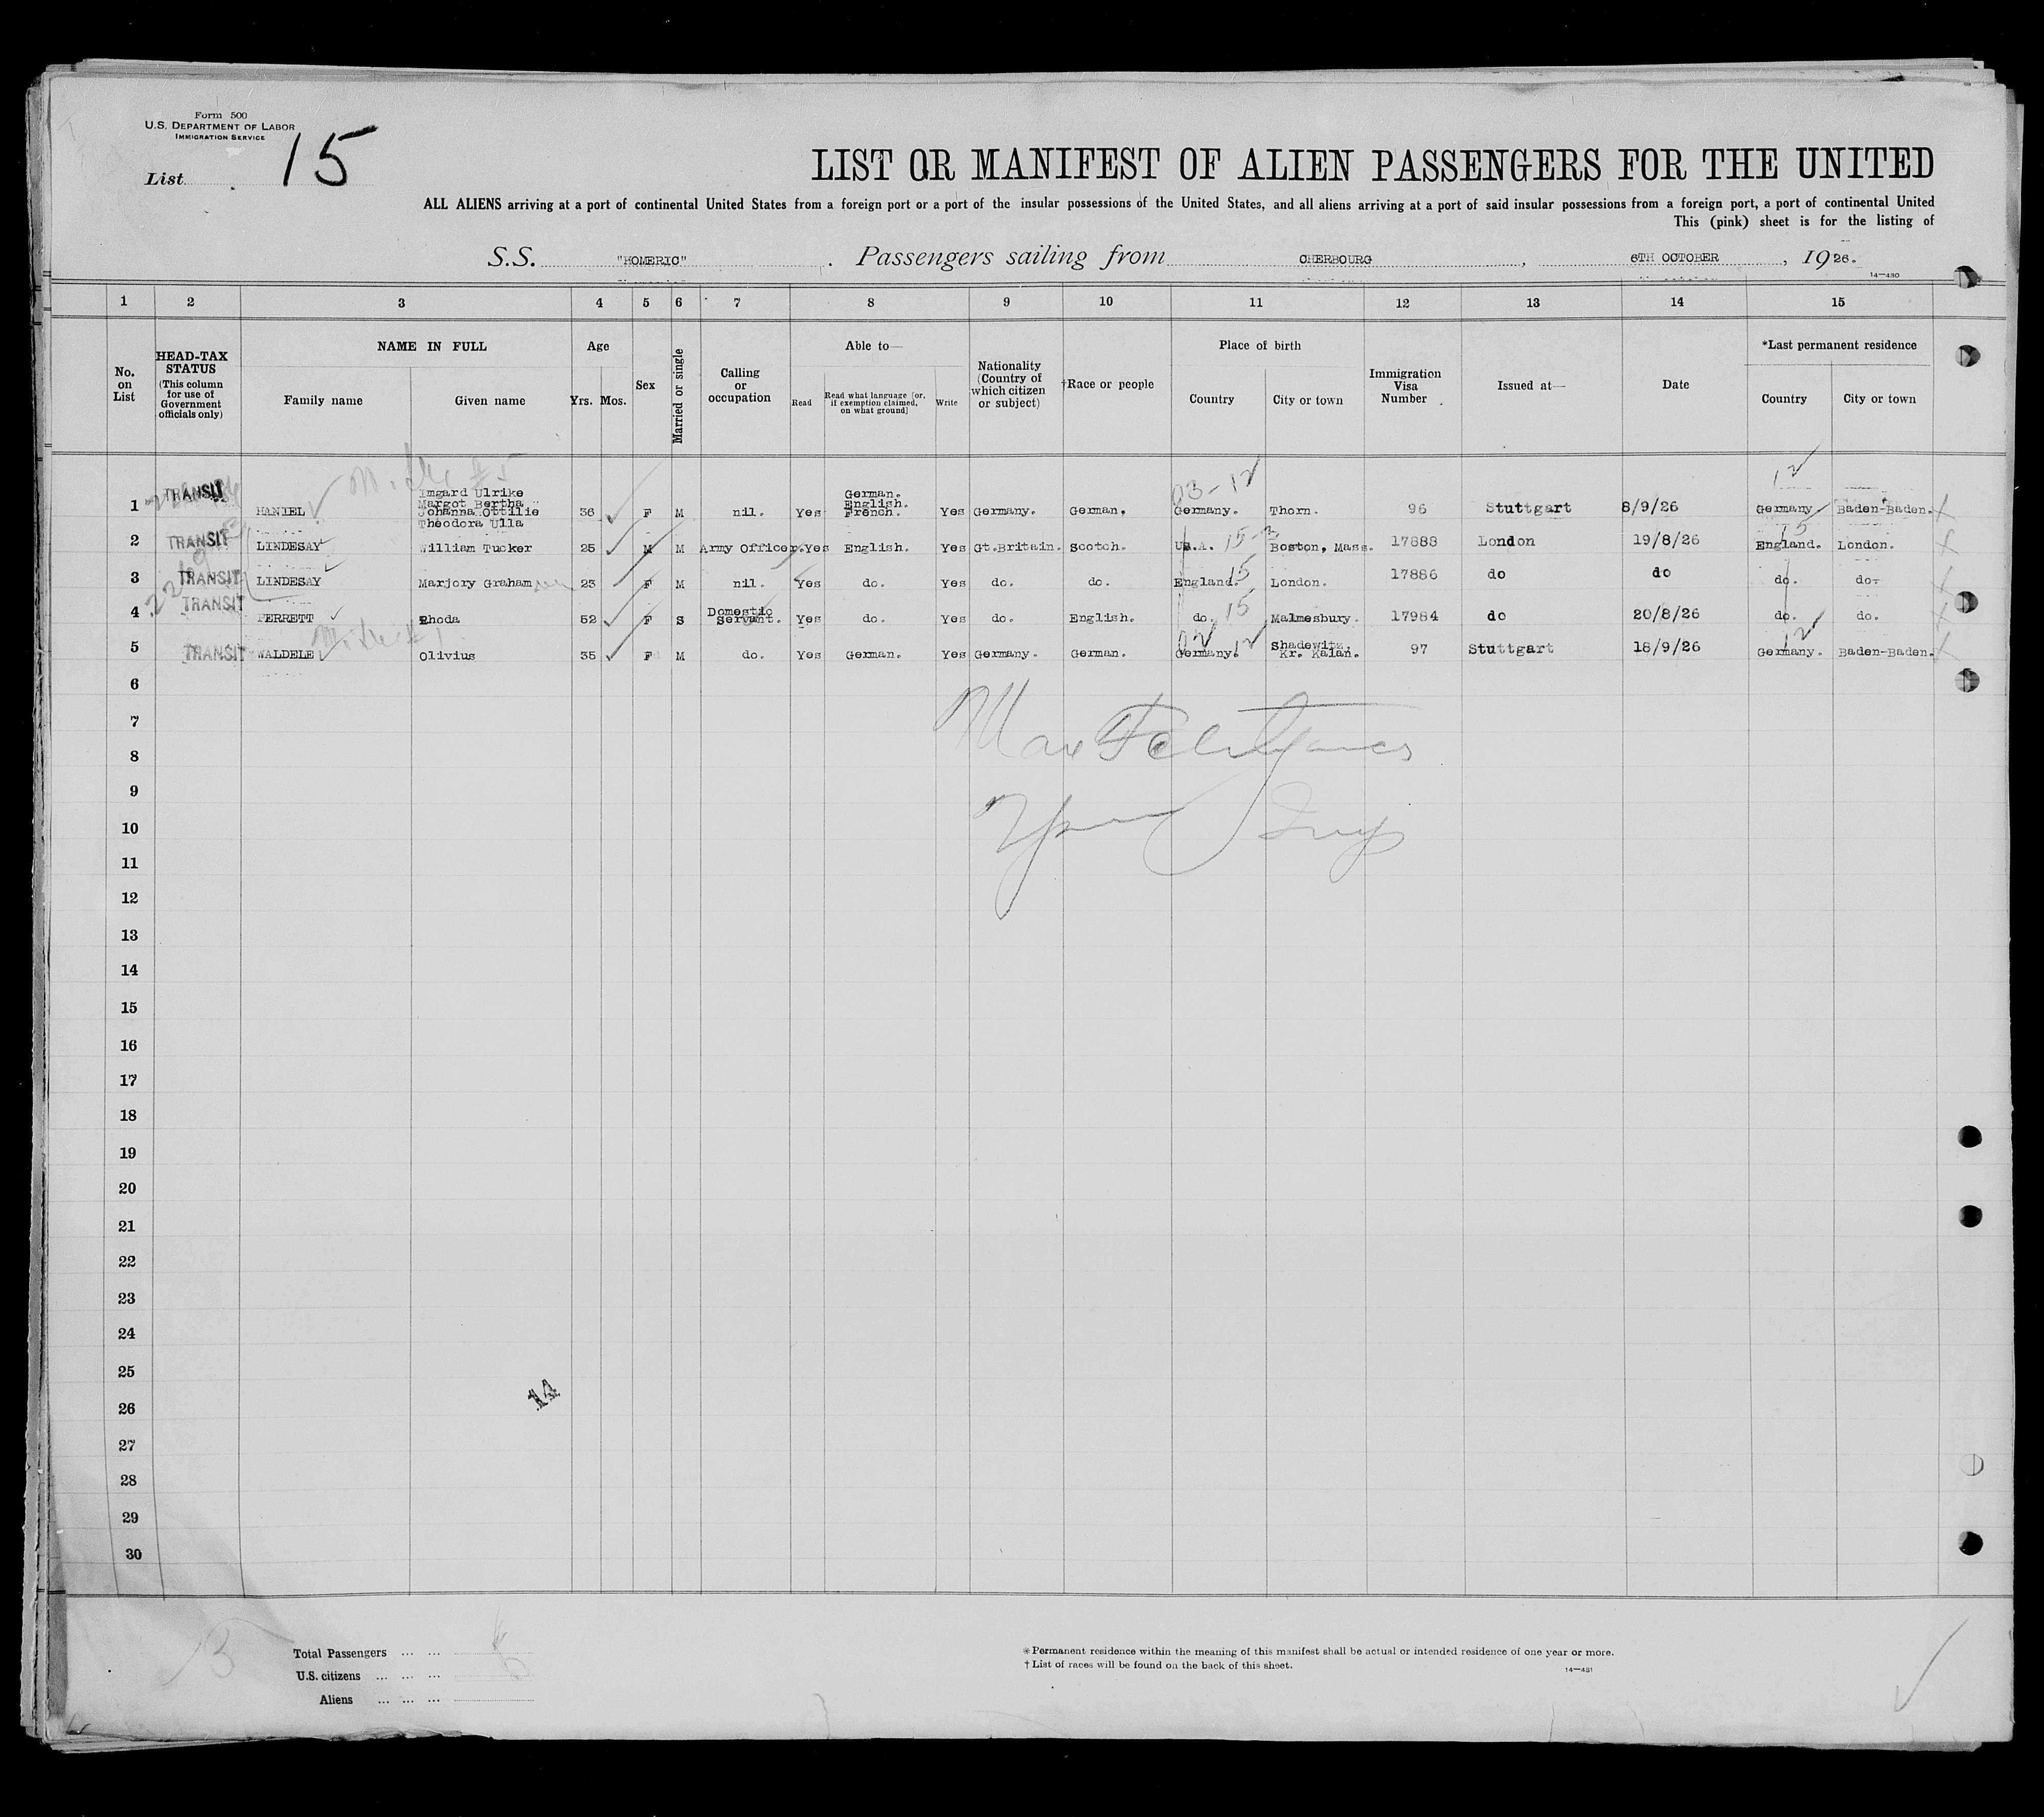 Form 500
U.S. DEPARTMENT OF LABOR
IMMIGRATION SERVICE
List 15
LIST OR MANIFEST OF ALIEN PASSENGERS FOR THE UNITED
ALL ALIENS arriving at a port of continental United States from a foreign port or a port of the insular possessions of the United States, and all aliens arriving at a port of said insular possessions from a foreign port, a port of continental United
This (pink) sheet is for the listing of
S.S. "HOMERIC" . Passengers sailing from CHERBOURG , 6TH OCTOBER , 1926.
14—480
1 2 3 4 5 6 7 8 9 10 11 12 13 14 15
No. on List
HEAD-TAX STATUS (This column for use of Government officials only)
NAME IN FULL
Family name
Given name
Age
Yrs. Mos.
Sex
Married or single
Calling or occupation
Able to—
Read
Read what language [or, if exemption claimed, on what ground]
Write
Nationality (Country of which citizen or subject)
†Race or people
Place of birth
Country
City or town
Immigration Visa Number
Issued at—
Date
*Last permanent residence
Country
City or town
03-12 12
1 TRANSIT HANIEL Imgard Ulrike Margot Bertha Johanna Ottilie Theodora Ulla 36 F M nil. Yes German. English. French. Yes Germany. German. Germany. Thorn. 96 Stuttgart 8/9/26 Germany Baden-Baden.
2 TRANSIT LINDESAY William Tucker 25 M M Army Officer. Yes English. Yes Gt.Britain. Scotch. U.S.A. 15-3 Boston, Mass. 17888 London 19/8/26 England. 15 London.
3 TRANSIT LINDESAY Marjory Graham 23 F M nil. Yes do. Yes do. do. England. 15 London. 17886 do do do. do.
4 TRANSIT PERRETT Rhoda 52 F S Domestic Servant. Yes do. Yes do. English. do. 15 Malmesbury. 17984 do 20/8/26 do. do.
5 TRANSIT WALDELE Olivius 35 F M do. Yes German. Yes Germany. German. Germany. 02 12 Shadewitz, Kr. Kalan. 97 Stuttgart 18/9/26 Germany. 12 Baden-Baden.
6
7
8
9
10
11
12
13
14
15
16
17
18
19
20
21
22
23
24
25
14
26
27
28
29
30
Total Passengers ... ...
U.S. citizens ... ... ...
Aliens ... ... ...
*Permanent residence within the meaning of this manifest shall be actual or intended residence of one year or more.
†List of races will be found on the back of this sheet.
14—481